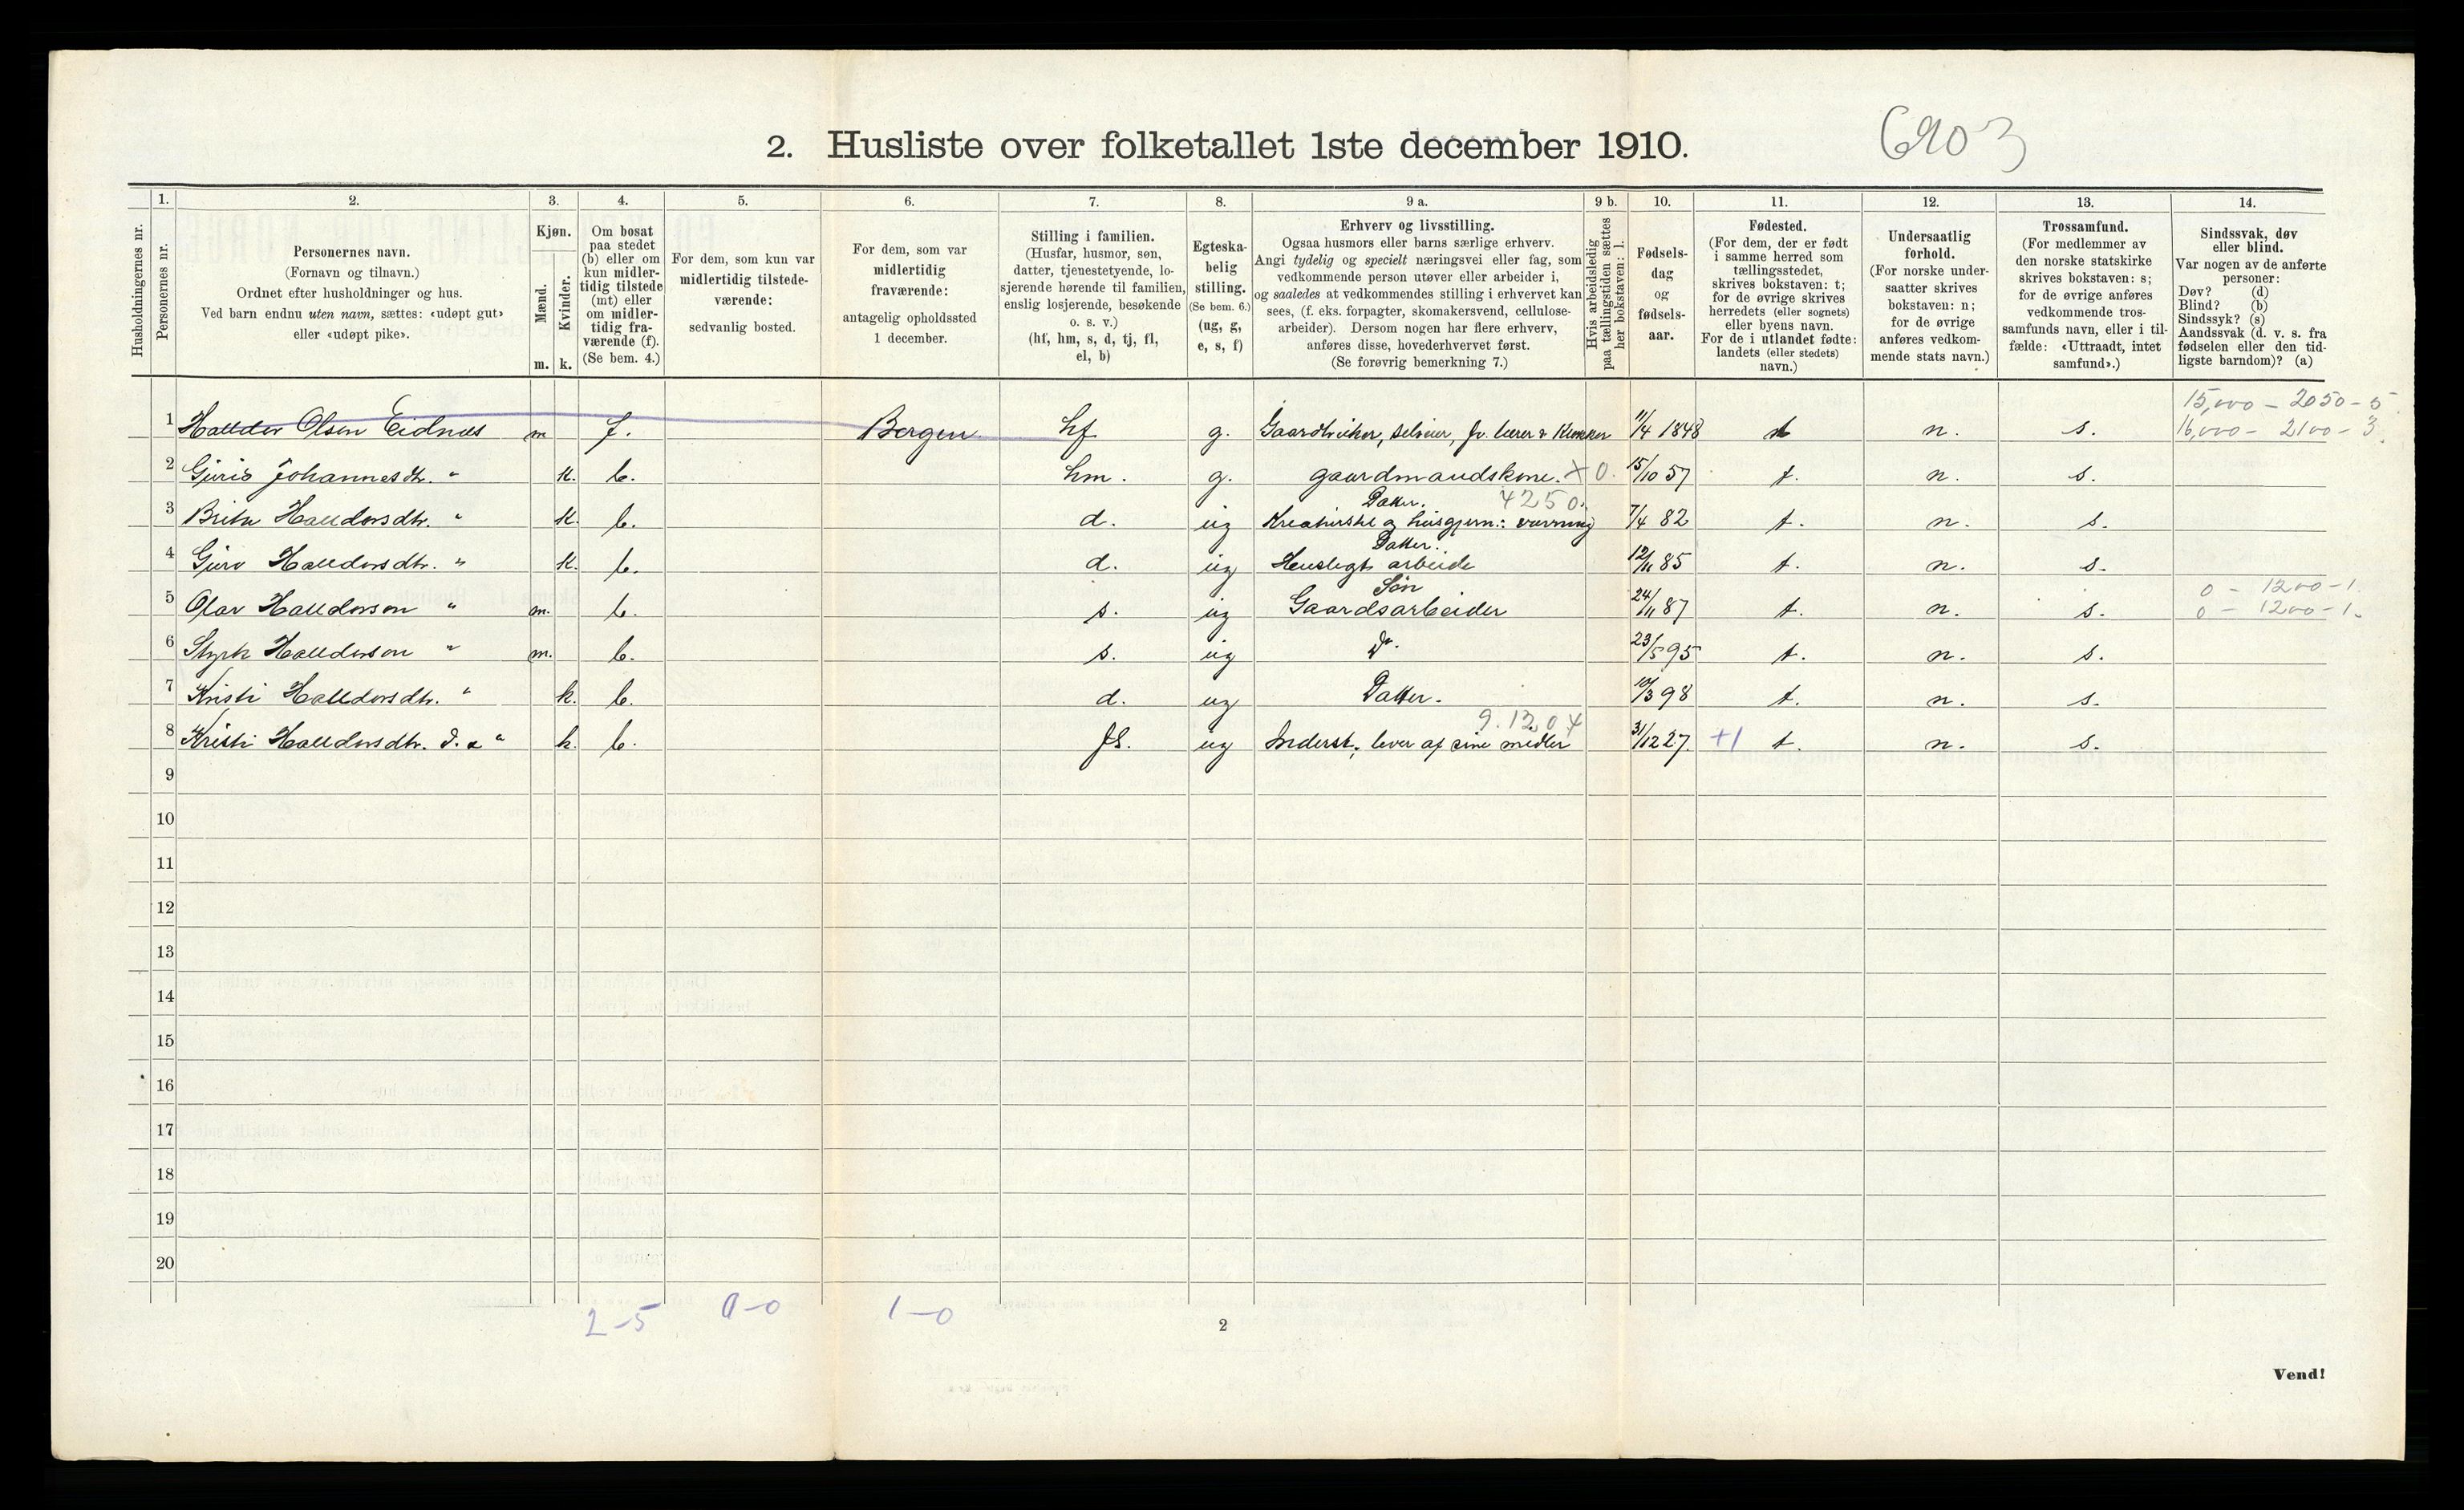 2. Husliste over folketallet 1ste december 1910.
6903
1. 2. 3. 4. 5. 6. 7. 8. 9 a. 9 b. 10. 11. 12. 13. 14.
Husholdningernes nr.
Personernes nr.
Personernes navn.
(Fornavn og tilnavn.)
Ordnet efter husholdninger og hus.
Ved barn endnu uten navn, sættes: «udøpt gut»
eller «udøpt pike».
Kjøn.
Mænd.
Kvinder.
m. k.
Om bosat
paa stedet
(b) eller om
kun midler-
tidig tilstede
(mt) eller
om midler-
tidig fra-
værende (f).
(Se bem. 4.)
For dem, som kun var
midlertidig tilstede-
værende:
sedvanlig bosted.
For dem, som var
midlertidig
fraværende:
antagelig opholdssted
1 december.
Stilling i familien.
(Husfar, husmor, søn,
datter, tjenestetyende, lo-
sjerende hørende til familien,
enslig losjerende, besøkende
o. s. v.)
(hf, hm, s, d, tj, fl,
el, b)
Egteska-
belig
stilling.
(Se bem. 6.)
(ug, g,
e, s, f)
Erhverv og livsstilling.
Ogsaa husmors eller barns særlige erhverv.
Angi tydelig og specielt næringsvei eller fag, som
vedkommende person utøver eller arbeider i,
og saaledes at vedkommendes stilling i erhvervet kan
sees, (f. eks. forpagter, skomakersvend, cellulose-
arbeider). Dersom nogen har flere erhverv,
anføres disse, hovederhvervet først.
(Se forøvrig bemerkning 7.)
Hvis arbeidsledig
paa tællingstiden sættes
her bokstaven: l.
Fødsels-
dag
og
fødsels-
aar.
Fødested.
(For dem, der er født
i samme herred som
tællingsstedet,
skrives bokstaven: t;
for de øvrige skrives
herredets (eller sognets)
eller byens navn.
For de i utlandet fødte:
landets (eller stedets)
navn.)
Undersaatlig
forhold.
(For norske under-
saatter skrives
bokstaven: n;
for de øvrige
anføres vedkom-
mende stats navn.)
Trossamfund.
(For medlemmer av
den norske statskirke
skrives bokstaven: s;
for de øvrige anføres
vedkommende tros-
samfunds navn, eller i til-
fælde: «Uttraadt, intet
samfund».)
Sindssvak, døv
eller blind.
Var nogen av de anførte
personer:
Døv? (d)
Blind? (b)
Sindssyk? (s)
Aandssvak (d. v. s. fra
fødselen eller den tid-
ligste barndom)? (a)
15,000 - 2050 - 5
1 Halldor Olsen Eidnæs m f. Bergen hf g. Gaardbruker, selveier, fv. lærer & Klokker 11/4 1848 t n. s. 16,000 - 2100 - 3.
2 Guris Johannesdtr. " k. b. hm. g. gaardmandskone. + 0. 15/10 57 t. n. s.
Datter. 4250.
3 Brita Halldorsdtr. " k. b. d. ug Kreaturstel og husgjern.: vævning 7/4 82 t. n. s.
Datter.
4 Guro Halldorsdtr. " k. b. d. ug Husligt arbeide 12/11 85 t. n. s.
Søn 0 - 1200 - 1.
5 Olav Halldorson " m. b. s. ug Gaardsarbeider 24/11 87 t. n. s. 0 - 1200 - 1.
6 Styrk Halldorson " m. b. s. ug Do. 23/5 95 t. n. s.
7 Kristi Halldorsdtr. " k. b. d. ug Datter. 10/3 98 t. n. s.
9.1204
8 Kristi Halldorsdtr. d. æ " k. b. fl. ug Inderst, lever af sine midler 31/12 27. +1 t. n. s.
9
10
11
12
13
14
15
16
17
18
19
20
2-5 0-0 1-0
2
Vend!